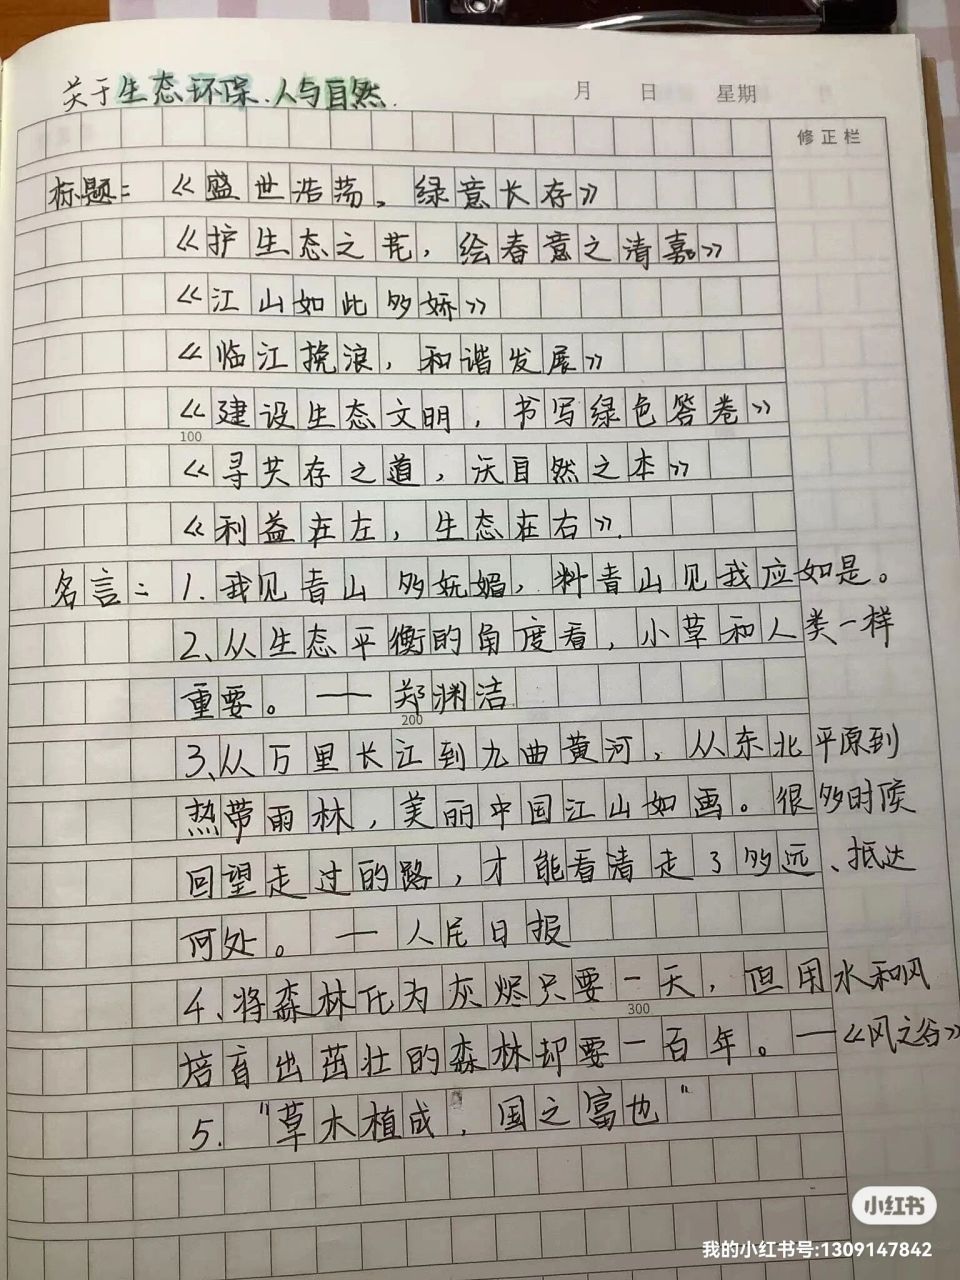 关于生态环保、人与自然.
月 日 星期
修正栏
标题：《盛世浩荡，绿意长存》
《护生态之花，绘春意之清嘉》
《江山如此多娇》
《临江挽浪，和谐发展》
《建设生态文明，书写绿色答卷》
100
《寻共存之道，沃自然之本》
《利益在左，生态在右》.
名言：1.我见青山多妩媚，料青山见我应如是。
2、从生态平衡的角度看，小草和人类一样
重要。——郑渊洁
200
3、从万里长江到九曲黄河，从东北平原到
热带雨林，美丽中国江山如画。很多时候
回望走过的路，才能看清走了多远、抵达
何处。—人民日报
4、将森林化为灰烬只要一天，但用水和风
300
培育出茁壮的森林却要一百年。—《风之谷》
5."草木植成，国之富也"
小红书
我的小红书号:1309147842